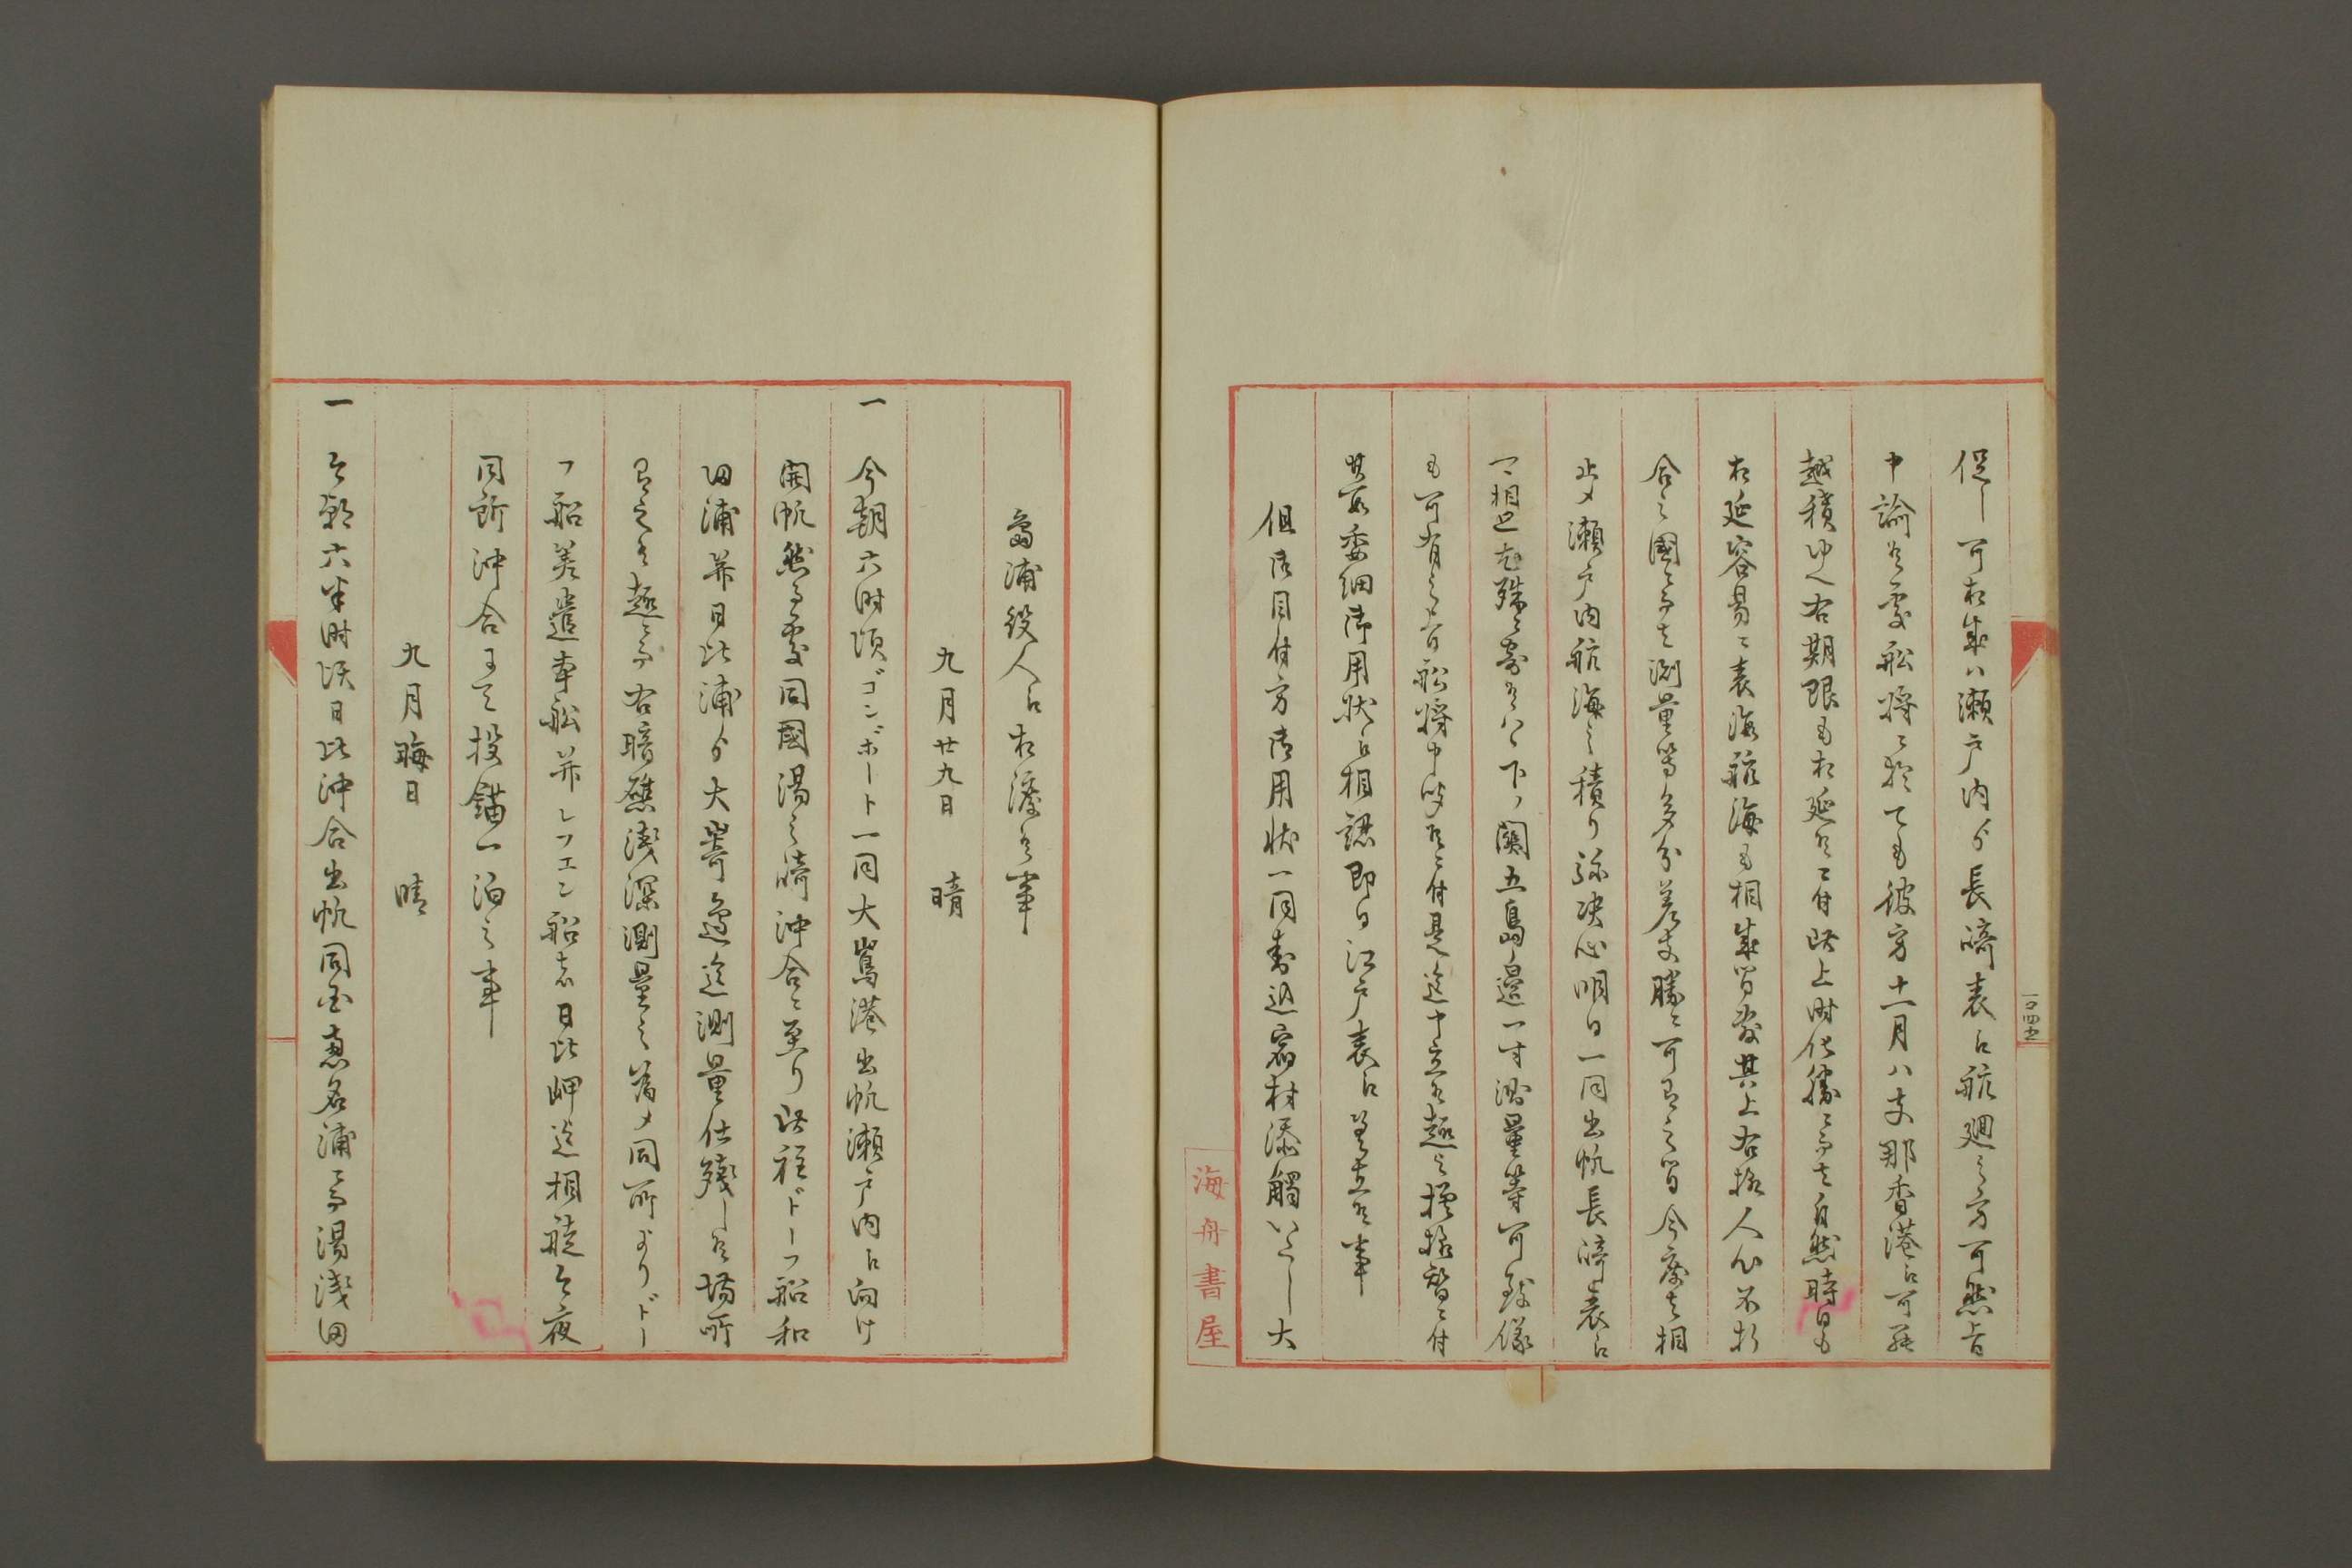 促し可相成ハ瀬戸内ゟ長崎表江航廻之方可然旨
申諭候處船将ニ於ても彼方十一月ハ支那香港江可
越積ゆへ右期限も相延候ニ付此上時化勝ニ而者自然時日も
相延容易ニ表海航海も相成間敷其上右様人心不折
合之國ニ而者測量等多分差支勝ニ可有之間今度者相
止メ瀬戸内航海之積り弥决心明日一同出帆長崎表江
下ノ関五島邊一寸測量等可致儀
も可有之旨船将申聞候ニ付是迄申立候趣之模様替ニ付
其段委細御用状江相認即日江戸表江差立候事
但御目付方御用状一同封込宿村添觸いたし大
一四五
海舟書屋
島浦役人江相渡候事
九月廿九日　晴
一　今朝六時頃ゴンボート一同大嶌港出帆瀬戸内江向け
開帆然る處同國湯之崎沖合ニ至り此程ドーフ船和
田浦并日比浦ゟ大嵜邊迄測量仕殘し候場所
有之候趣ニ而右暗礁淺深測量之為メ同所よりドー
フ船差遣本船并レフエン船者日比岬迄相越今夜
同所沖合ニ而投錨一泊之事
九月晦日　晴
一　今朝六半時頃日比沖合出帆同国衣奈浦ニ而湯淺田